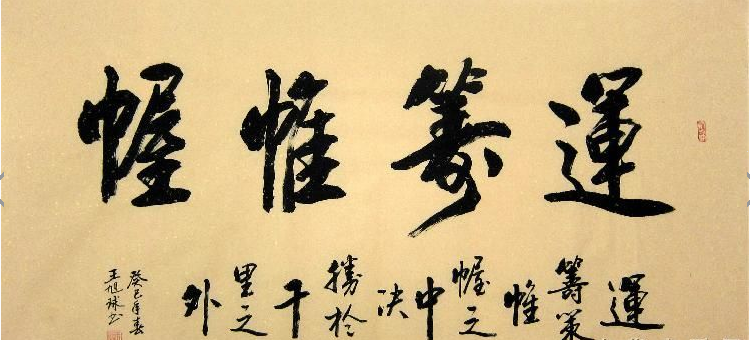 運籌帷幄
運籌策帷幄之中决勝於千里之外
癸巳年春
王旭球书